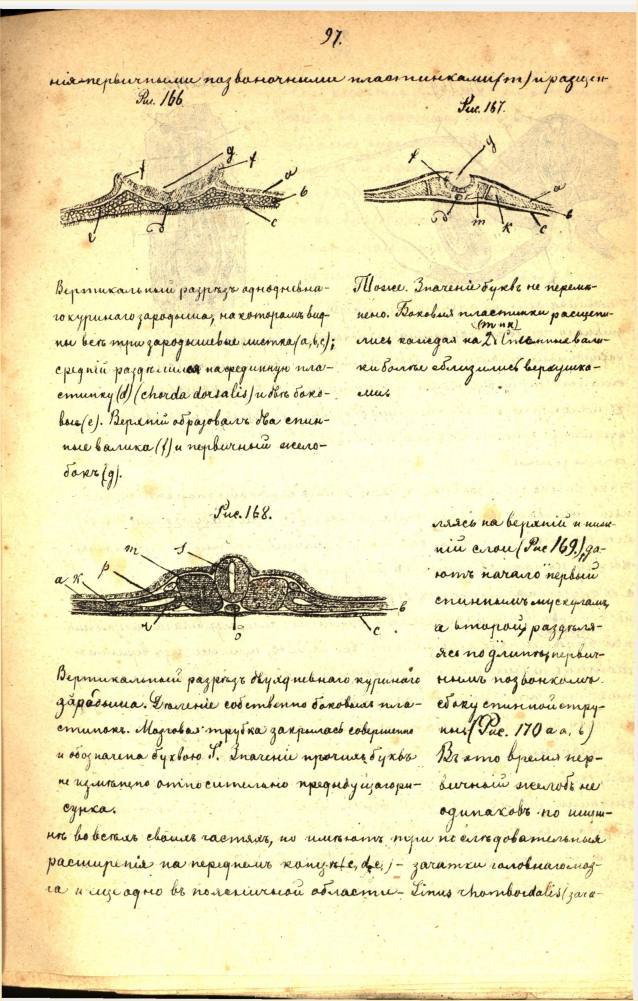 97.
нія первичными позвоночными пластинками (m) и расщеп-
Рис. 166.
f g f a b c e d
Вертикальный разрѣзъ однодневна-
го куринаго зародыша, на которомъ вид-
ны всѣ три зародышевые листка (a, b, c);
средній раздѣлился на срединную пла-
стинку (d) (chorda dorsalis) и двѣ боко-
выя (e). Верхній образовалъ два спин-
ные валика (f) и первичный жело-
бокъ (g).
Рис. 167.
f g a b c d m k
Тоже. Значеніе буквъ не перемѣ-
нено. Боковыя пластинки расщепи-
(m и k)
лись каждая на 2. Спинные вали-
ки болѣе сблизились верхушка-
ми
Рис. 168.
m S p k a b c d
Вертикальный разрѣзъ двухдневнаго куринаго
зародыша. Дѣленіе собственно боковыхъ пла-
стинокъ. Мозговая трубка закрылась совершенно
и обозначена буквою S. Значеніе прочихъ буквъ
не измѣнено относительно предыдущаго ри-
сунка.
ляясь на верхній и ниж-
ній слои (Рис 169.), да-
ютъ начало первый
спиннымъ мускуламъ,
а второй, раздѣля-
ясь по длинѣ, первич-
нымъ позвонкамъ
сбоку спинной стру-
ны (Рис. 170 a a, b)
Въ это время пер-
вичный желобъ не
одинаковъ по шири-
нѣ во всѣхъ своихъ частяхъ, но имѣютъ три послѣдовательныя
расширенія на переднемъ концѣ - зачатки головнаго моз-
га и еще одно въ поясничной области - Sinus rhomboidalis (зача-